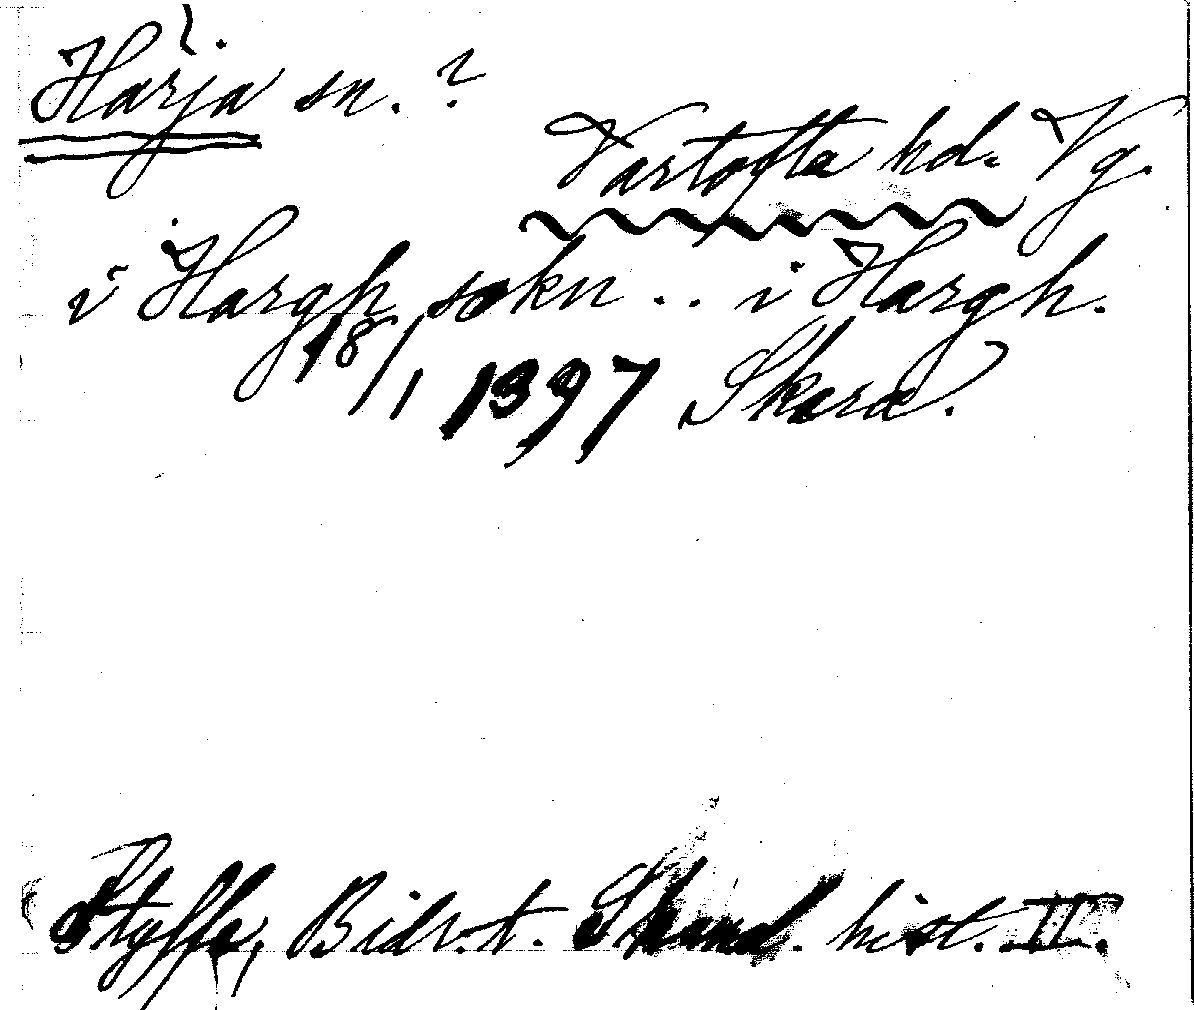 Härja sn. ?
Vartofta hd. Vg.
i Hargh sokn . . i Hargh.
18/1 1397 Skara.
Styffe, Bidr. t. Skand. hist. II.